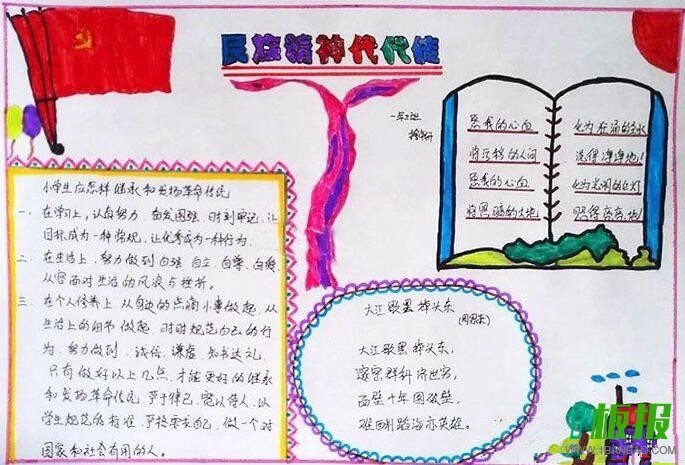 民族精神代代传
小学生应怎样继承和发扬革命传统
一、在学习上,认真努力、奋发图强、时刻牢记,让
目标成为一种常规,让优秀成为一种行为.
二、在生活上,努力做到自强、自立、自尊、自爱,
从容面对生活的风浪与挫折。
三、在个人修养上,从身边的点滴小事做起,从
生活上的细节做起,时时规范自己的行
为、努力做到、诚信、谦虚、知书达礼,
只有做好以上几点,才能更好的继承
和发扬革命传统,严于律己,宽以待人,以
学生规范的标准,严格要求自己,做一个对
国家和社会有用的人。
愿我的心血
将污秽的人间
愿我的心血
将黑暗的大地
化为奔涌的圣水
洗得净净地!
化为光明的红灯
照得亮亮地!
大江歌罢掉头东
(周恩来)
大江歌罢掉头东,
邃密群科济世穷,
面壁十年图破壁,
难酬蹈海亦英雄。
板报